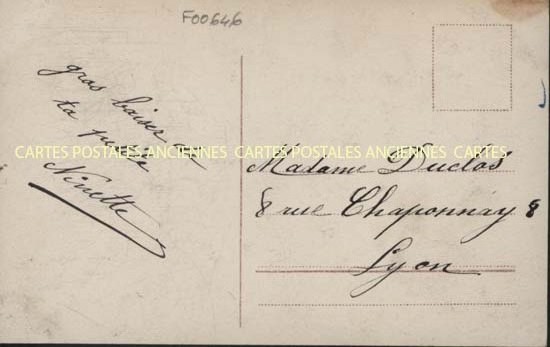 F00646
gros baiser de
ta petite
Ninette
CARTES POSTALES ANCIENNES CARTES POSTALES ANCIENNES CARTES
Madame Duclos
8 rue Chaponnay 8
Lyon